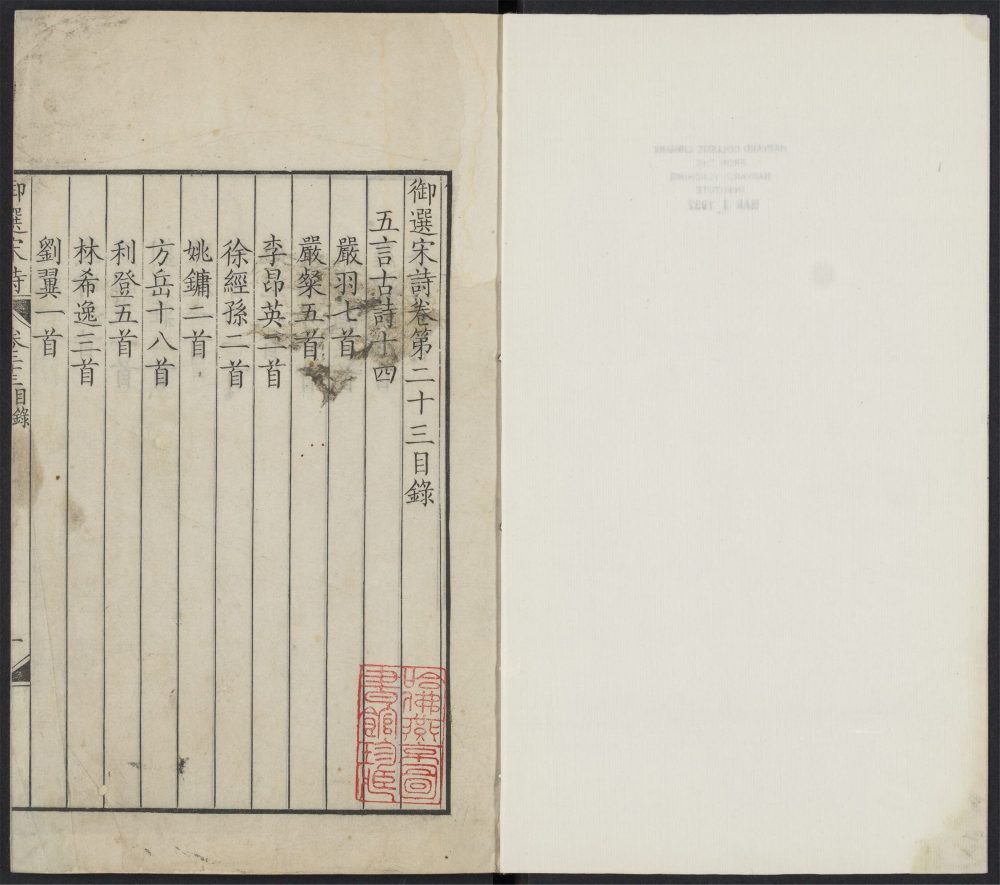 HARVARD COLLEGE LIBRARY
FROM THE
HARVARD-YENCHING
INSTITUTE
MAR 1 1932
御選宋詩卷第二十三目錄
五言古詩十四
嚴羽七首
嚴粲五首
李昂英二首
徐經孫二首
姚鏞二首
方岳十八首
利登五首
林希逸三首
劉翼一首
御選宋詩
卷二十三目錄
一
哈佛燕京圖
書館珍藏